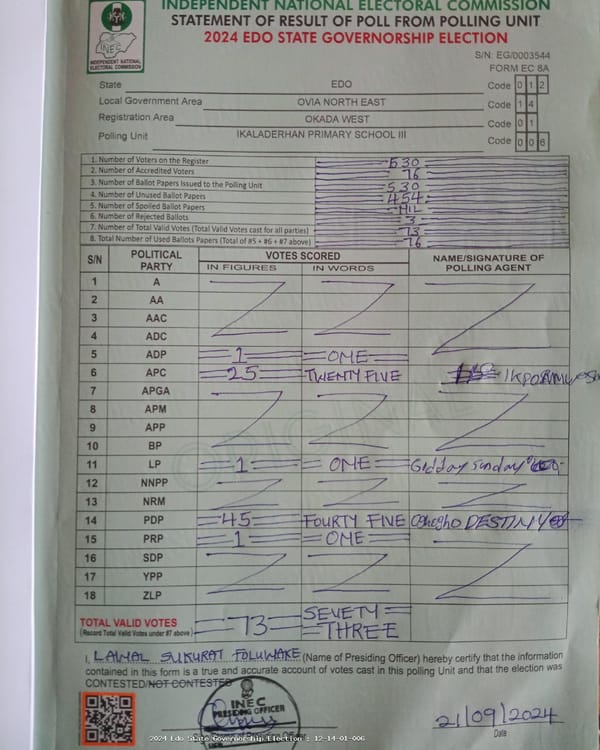 INDEPENDENT NATIONAL ELECTORAL COMMISSION
STATEMENT OF RESULT OF POLL FROM POLLING UNIT
2024 EDO STATE GOVERNORSHIP ELECTION
INEC
INDEPENDENT NATIONAL ELECTORAL COMMISSION
S/N: EG/0003544
FORM EC 8A
State EDO Code 0 1 2
Local Government Area OVIA NORTH EAST Code 1 4
Registration Area OKADA WEST Code 0 1
Polling Unit IKALADERHAN PRIMARY SCHOOL III Code 0 0 6
1. Number of Voters on the Register 530
2. Number of Accredited Voters 76
3. Number of Ballot Papers Issued to the Polling Unit 530
4. Number of Unused Ballot Papers 454
5. Number of Spoiled Ballot Papers NIL
6. Number of Rejected Ballots 3
7. Number of Total Valid Votes (Total Valid Votes cast for all parties) 73
8. Total Number of Used Ballots Papers (Total of #5 + #6 + #7 above) 76
S/N POLITICAL PARTY VOTES SCORED NAME/SIGNATURE OF POLLING AGENT
IN FIGURES IN WORDS
1 A
2 AA
3 AAC
4 ADC
5 ADP 1 ONE
6 APC 25 TWENTY FIVE
7 APGA
8 APM
9 APP
10 BP
11 LP 1 ONE Godday Sunday
12 NNPP
13 NRM
14 PDP 45 FOURTY FIVE DESTINY
15 PRP 1 ONE
16 SDP
17 YPP
18 ZLP
TOTAL VALID VOTES 73 SEVETY THREE
(Record Total Valid Votes under #7 above)
I, LAWAL SUKURAT FOLUWAKE (Name of Presiding Officer) hereby certify that the information
contained in this form is a true and accurate account of votes cast in this polling Unit and that the election was
CONTESTED/NOT CONTESTED
INEC
PRESIDING OFFICER
21/09/2024
Date
2024 Edo State Governorship Election : 12-14-01-006